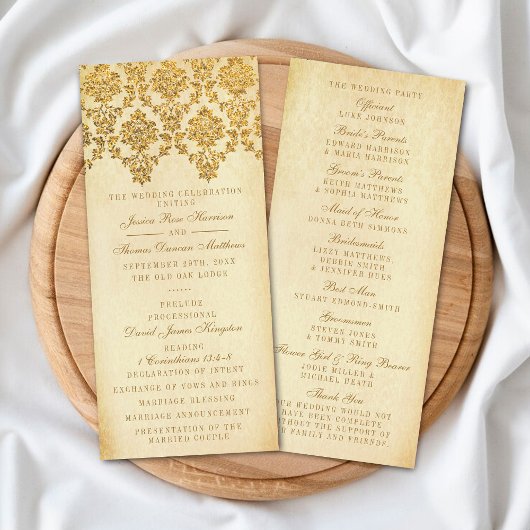 THE WEDDING CELEBRATION
UNITING
Jessica Rose Harrison
AND
Thomas Duncan Matthews
SEPTEMBER 29TH, 20XX
THE OLD OAK LODGE
......
PRELUDE
PROCESSIONAL
David James Kingston
READING
1 Corinthians 13:4-8
DECLARATION OF INTENT
EXCHANGE OF VOWS AND RINGS
MARRIAGE BLESSING
MARRIAGE ANNOUNCEMENT
PRESENTATION OF THE
MARRIED COUPLE
THE WEDDING PARTY
Officiant
LUKE JOHNSON
Bride's Parents
EDWARD HARRISON
& MARIA HARRISON
Groom's Parents
KEITH MATTHEWS
& SOPHIA MATTHEWS
Maid of Honor
DONNA BETH SIMMONS
Bridesmaids
LIZZY MATTHEWS,
DEBBIE SMITH
& JENNIFER HUES
Best Man
STUART EDMOND-SMITH
Groomsmen
STEVEN JONES
& TOMMY SMITH
Flower Girl & Ring Bearer
JODIE MILLER &
MICHAEL HEATH
Thank You
OUR WEDDING WOULD NOT
HAVE BEEN COMPLETE
WITHOUT THE SUPPORT OF
OUR FAMILY AND FRIENDS.